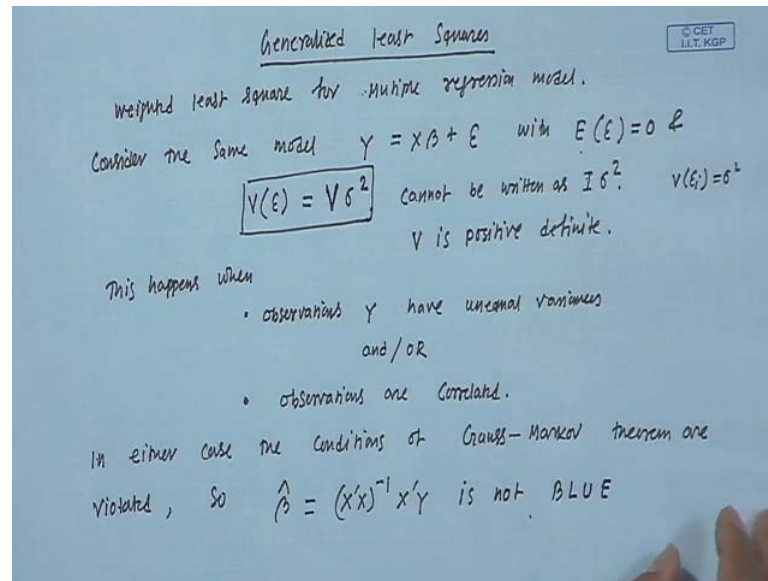 Generalized least Squares
© CET
I.I.T. KGP
Weighted least square for multiple regression model.
Consider the same model Y = Xβ + ε with E(ε) = 0 &
V(ε) = Vσ² cannot be written as Iσ². V(εi) = σ²
V is positive definite.
This happens when
• observations Y have unequal variances
and / OR
• observations are correlated.
In either case the conditions of Gauss-Markov theorem are
violated, so β̂ = (X'X)⁻¹ X'Y is not BLUE